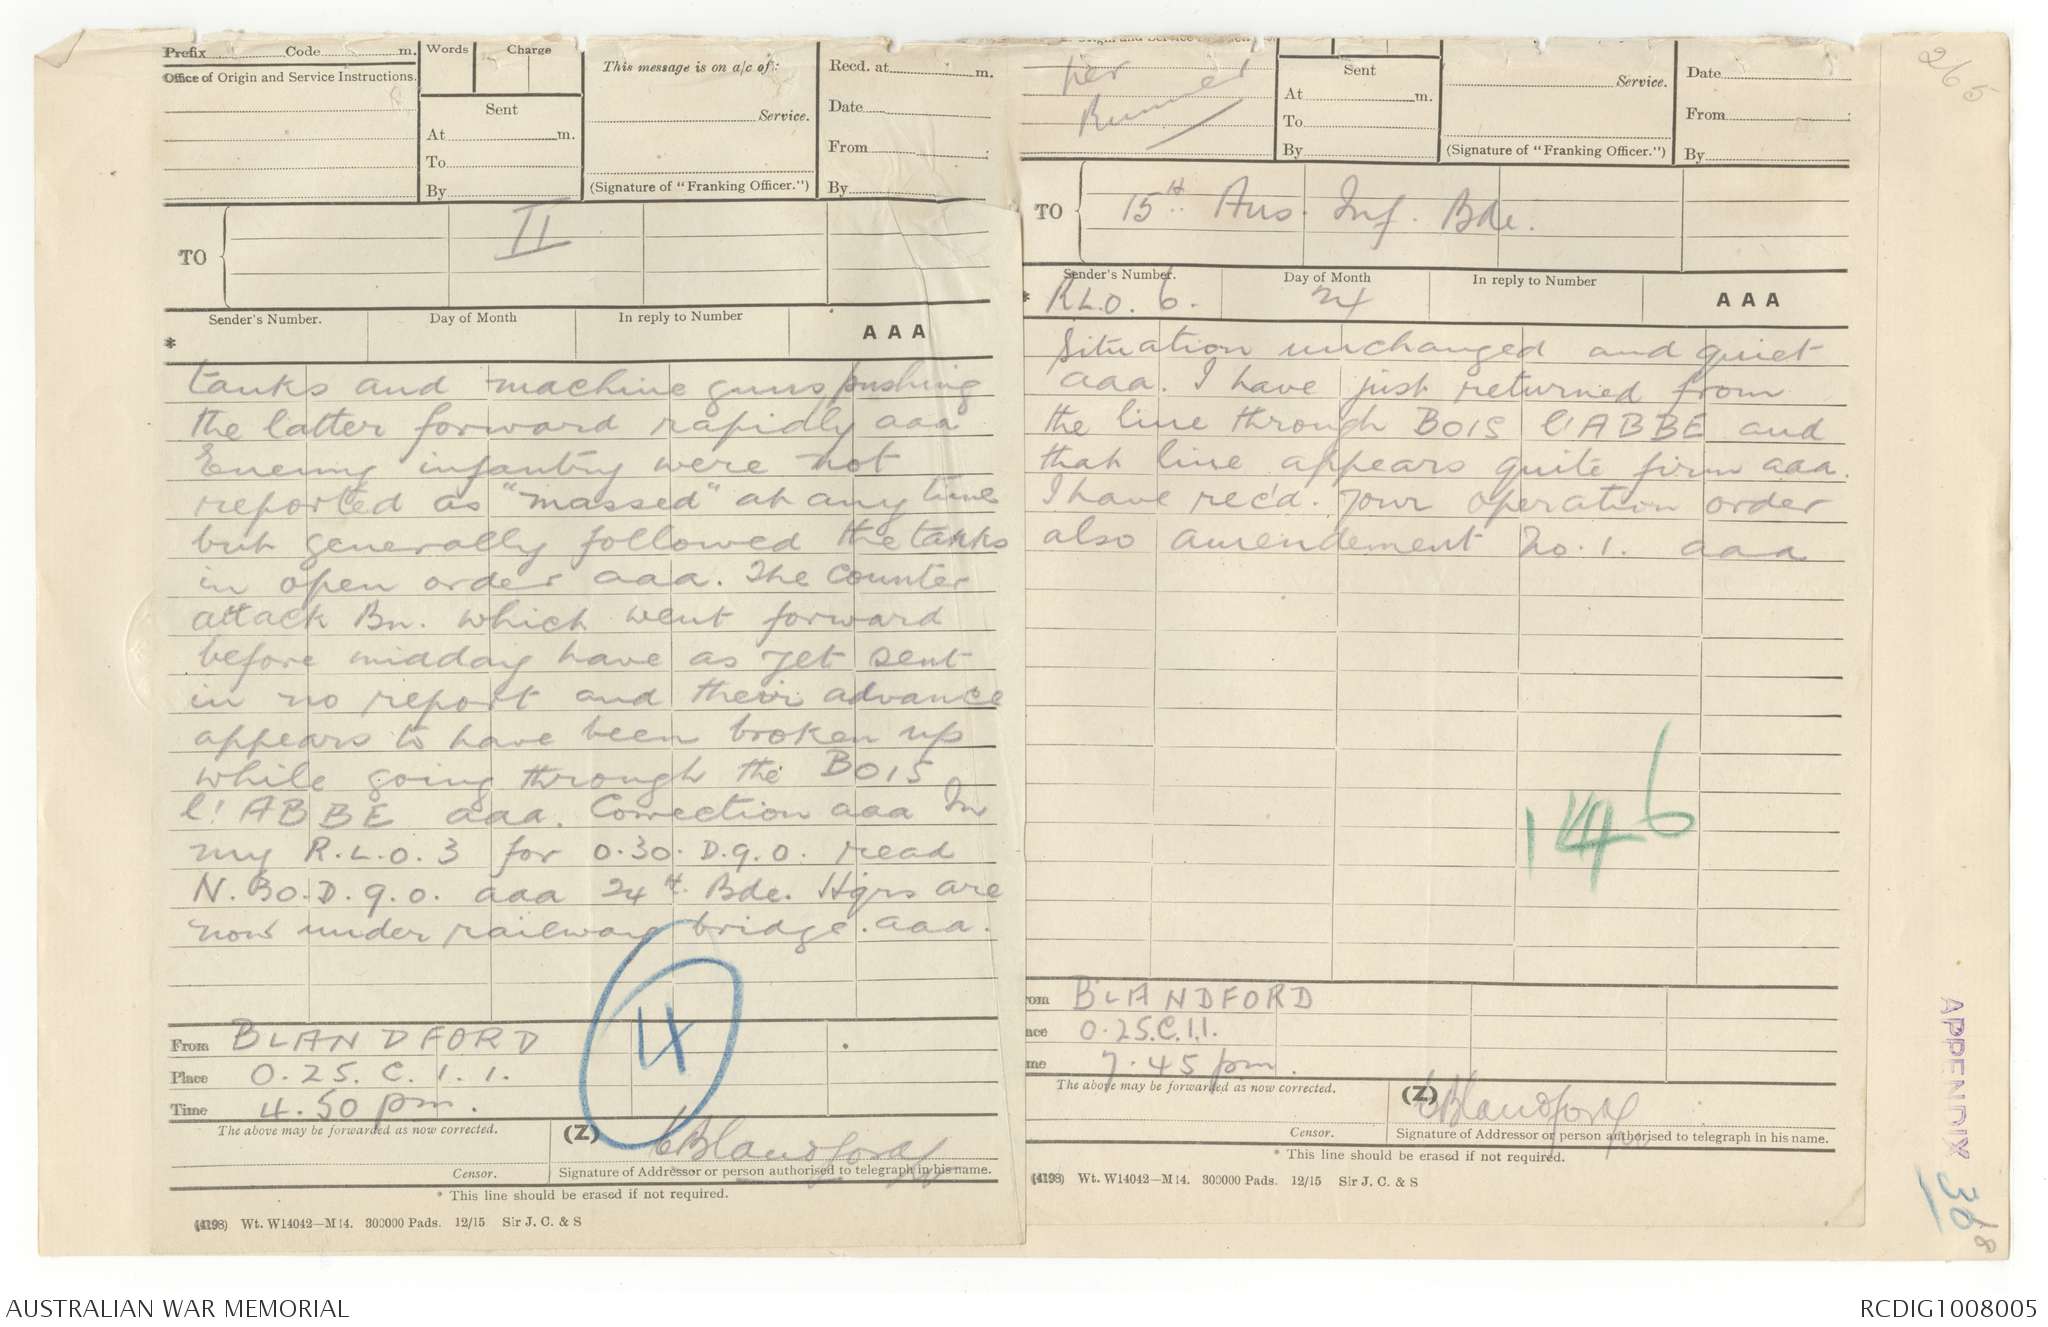 Prefix Code m.
Words Charge
This message is on a/c of:
Recd. at m.
Office of Origin and Service Instructions.
Sent
Service.
Date
At m.
From
To
By
(Signature of "Franking Officer.")
By
II
TO
Sender's Number. Day of Month In reply to Number AAA
*
tanks and machine guns pushing
the latter forward rapidly aaa
Enemy infantry were not
reported as "massed" at any time
but generally followed the tanks
in open order aaa. The counter
attack Bn. which went forward
before midday have as yet sent
in no report and their advance
appears to have been broken up
while going through the BOIS
l'ABBE aaa. Correction aaa In
my R.L.O.3 for O.30.D.9.0. read
N.30.D.9.0. aaa 24th Bde. Hqrs are
now under railway bridge. aaa.
From BLANDFORD
Place O.25.C.1.1.
Time 4.50 pm.
The above may be forwarded as now corrected. (Z) Blandford
Censor. Signature of Addressor or person authorised to telegraph in his name.
* This line should be erased if not required.
(4198) Wt. W14042—M14. 300000 Pads. 12/15 Sir J. C. & S
per
Runner
Sent
Service.
Date
At m.
To
From
By
(Signature of "Franking Officer.")
By
TO 15th Aus. Inf. Bde.
Sender's Number. Day of Month In reply to Number AAA
* R.L.O. 6. 24
Situation unchanged and quiet
aaa. I have just returned from
the line through BOIS l'ABBE and
that line appears quite firm aaa.
I have rec'd. your operation order
also amendement No. 1. aaa
146
om BLANDFORD
ace O.25.C.1.1.
me 7.45 pm.
The above may be forwarded as now corrected. (Z) Blandford
Censor. Signature of Addressor or person authorised to telegraph in his name.
* This line should be erased if not required.
(4198) Wt. W14042—M14. 300000 Pads. 12/15 Sir J. C. & S
265
APPENDIX 36
8
AUSTRALIAN WAR MEMORIAL
RCDIG1008005